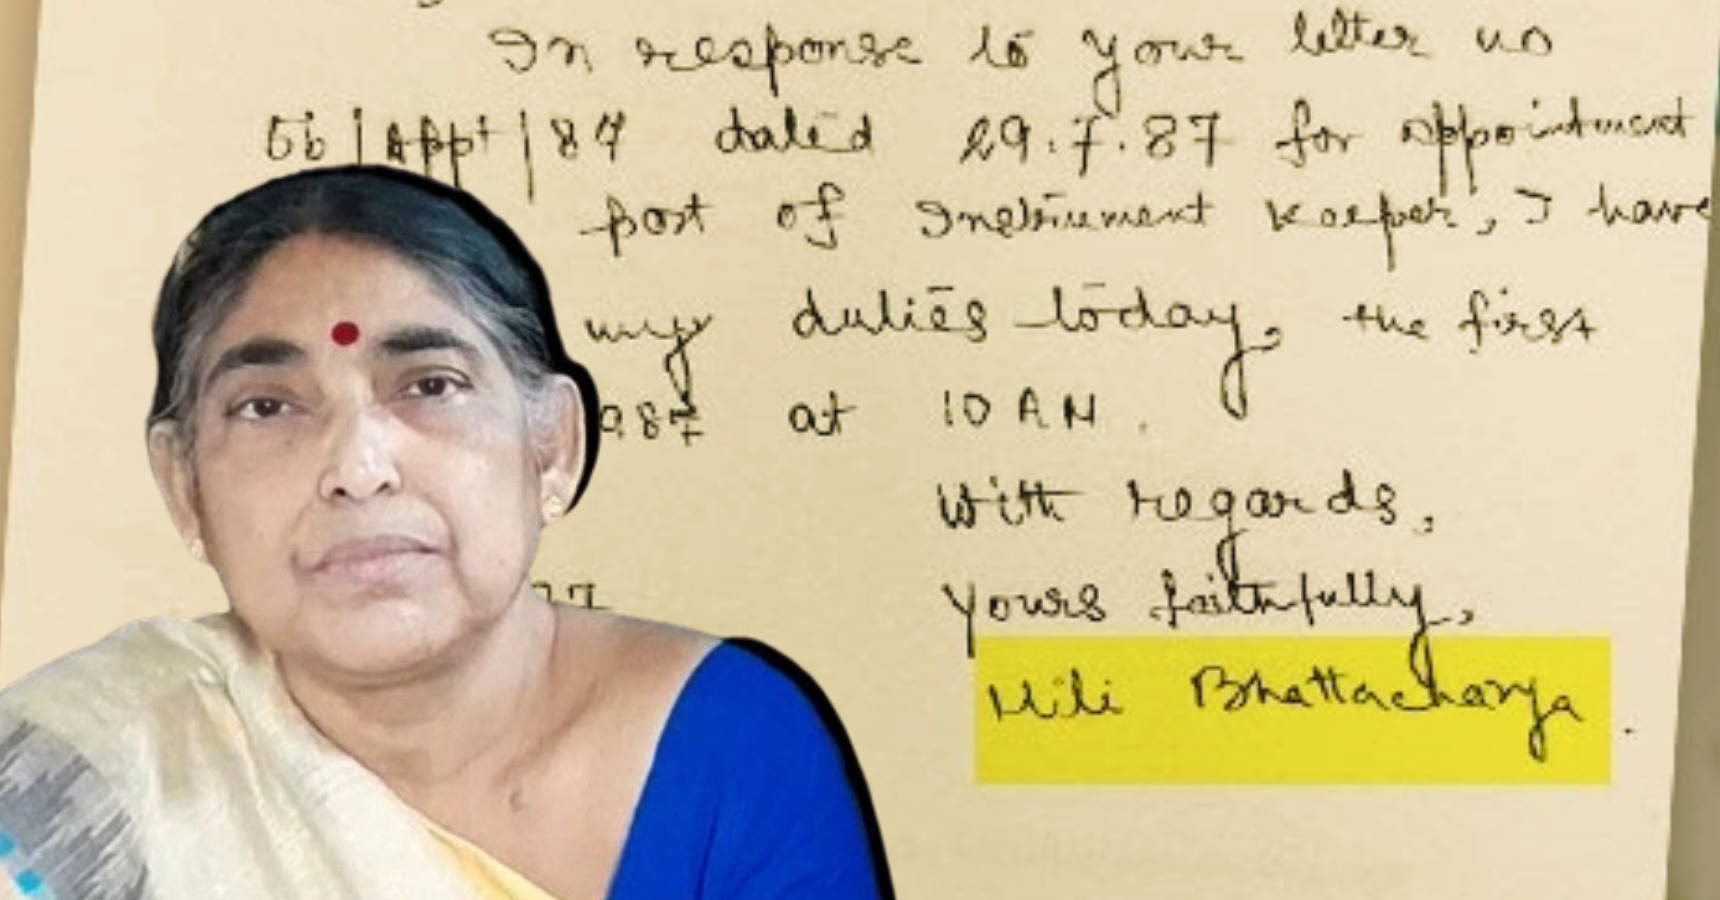 In response to your letter no
56/Appt/87 dated 29.7.87 for appointment
post of Instrument Keeper, I have
my duties today, the first
987 at 10 AM.
With regards,
Yours faithfully,
Mili Bhattacharya.